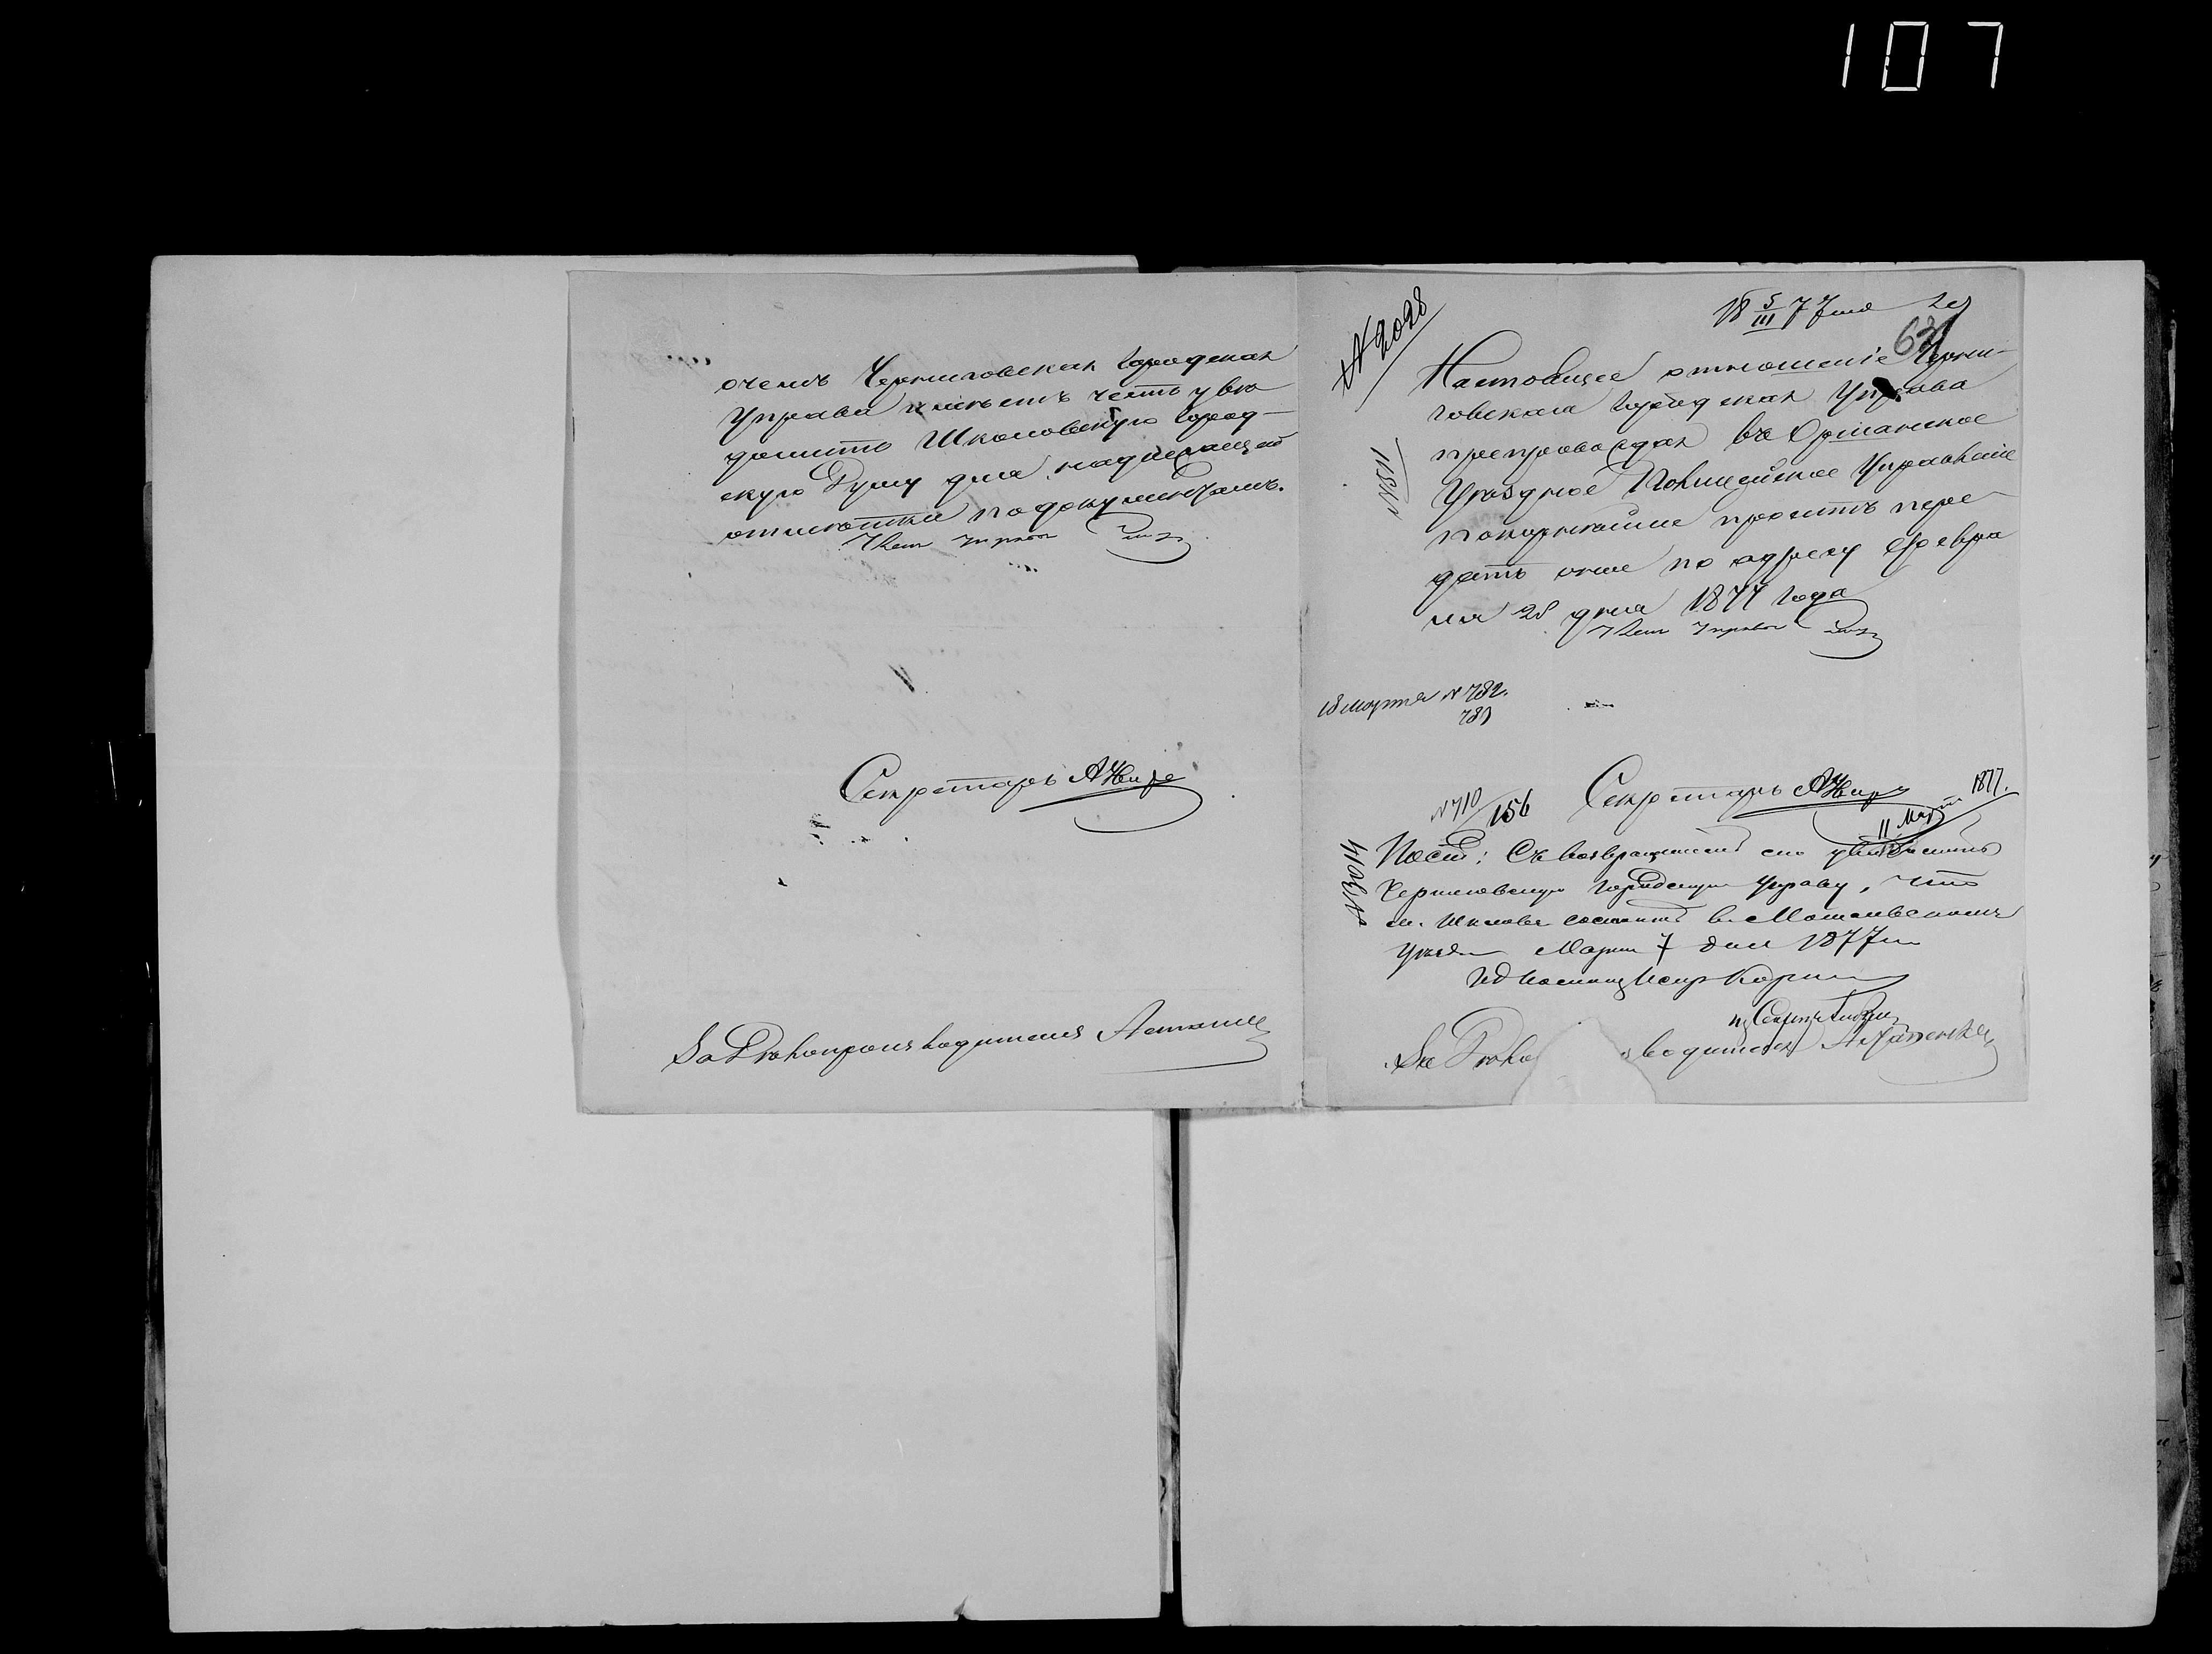 107
очемъ Черниговская Городская
Управа имѣетъ честь увѣ
домить Шкловскую Город-
скую Думу для надлежащей
отмѣтки по документамъ.
Членъ Управы
Секретарь А Жира
За Дѣлопроизводителя
№ 2028
18 5/III 77 года
63
Настоящее отношеніе Черни-
говская Городская Управа
препровождая въ Оршанское
Уѣздное Полицейское Управленіе
покорнѣйше проситъ пере
дать оное по адресу Февра
ля 28 дня 1877 года
Членъ Управы
18 марта № 782.
783
№ 710/156
Секретарь А Жира
11 Марта 1877.
Пост: Съ возвращеніемъ сего увѣдомить
Черниговскую Городскую Управу, что
м. Шкловъ состоитъ в. Могилевскомъ
уѣздѣ Марта 7 дня 1877 г
За Дѣло водителя